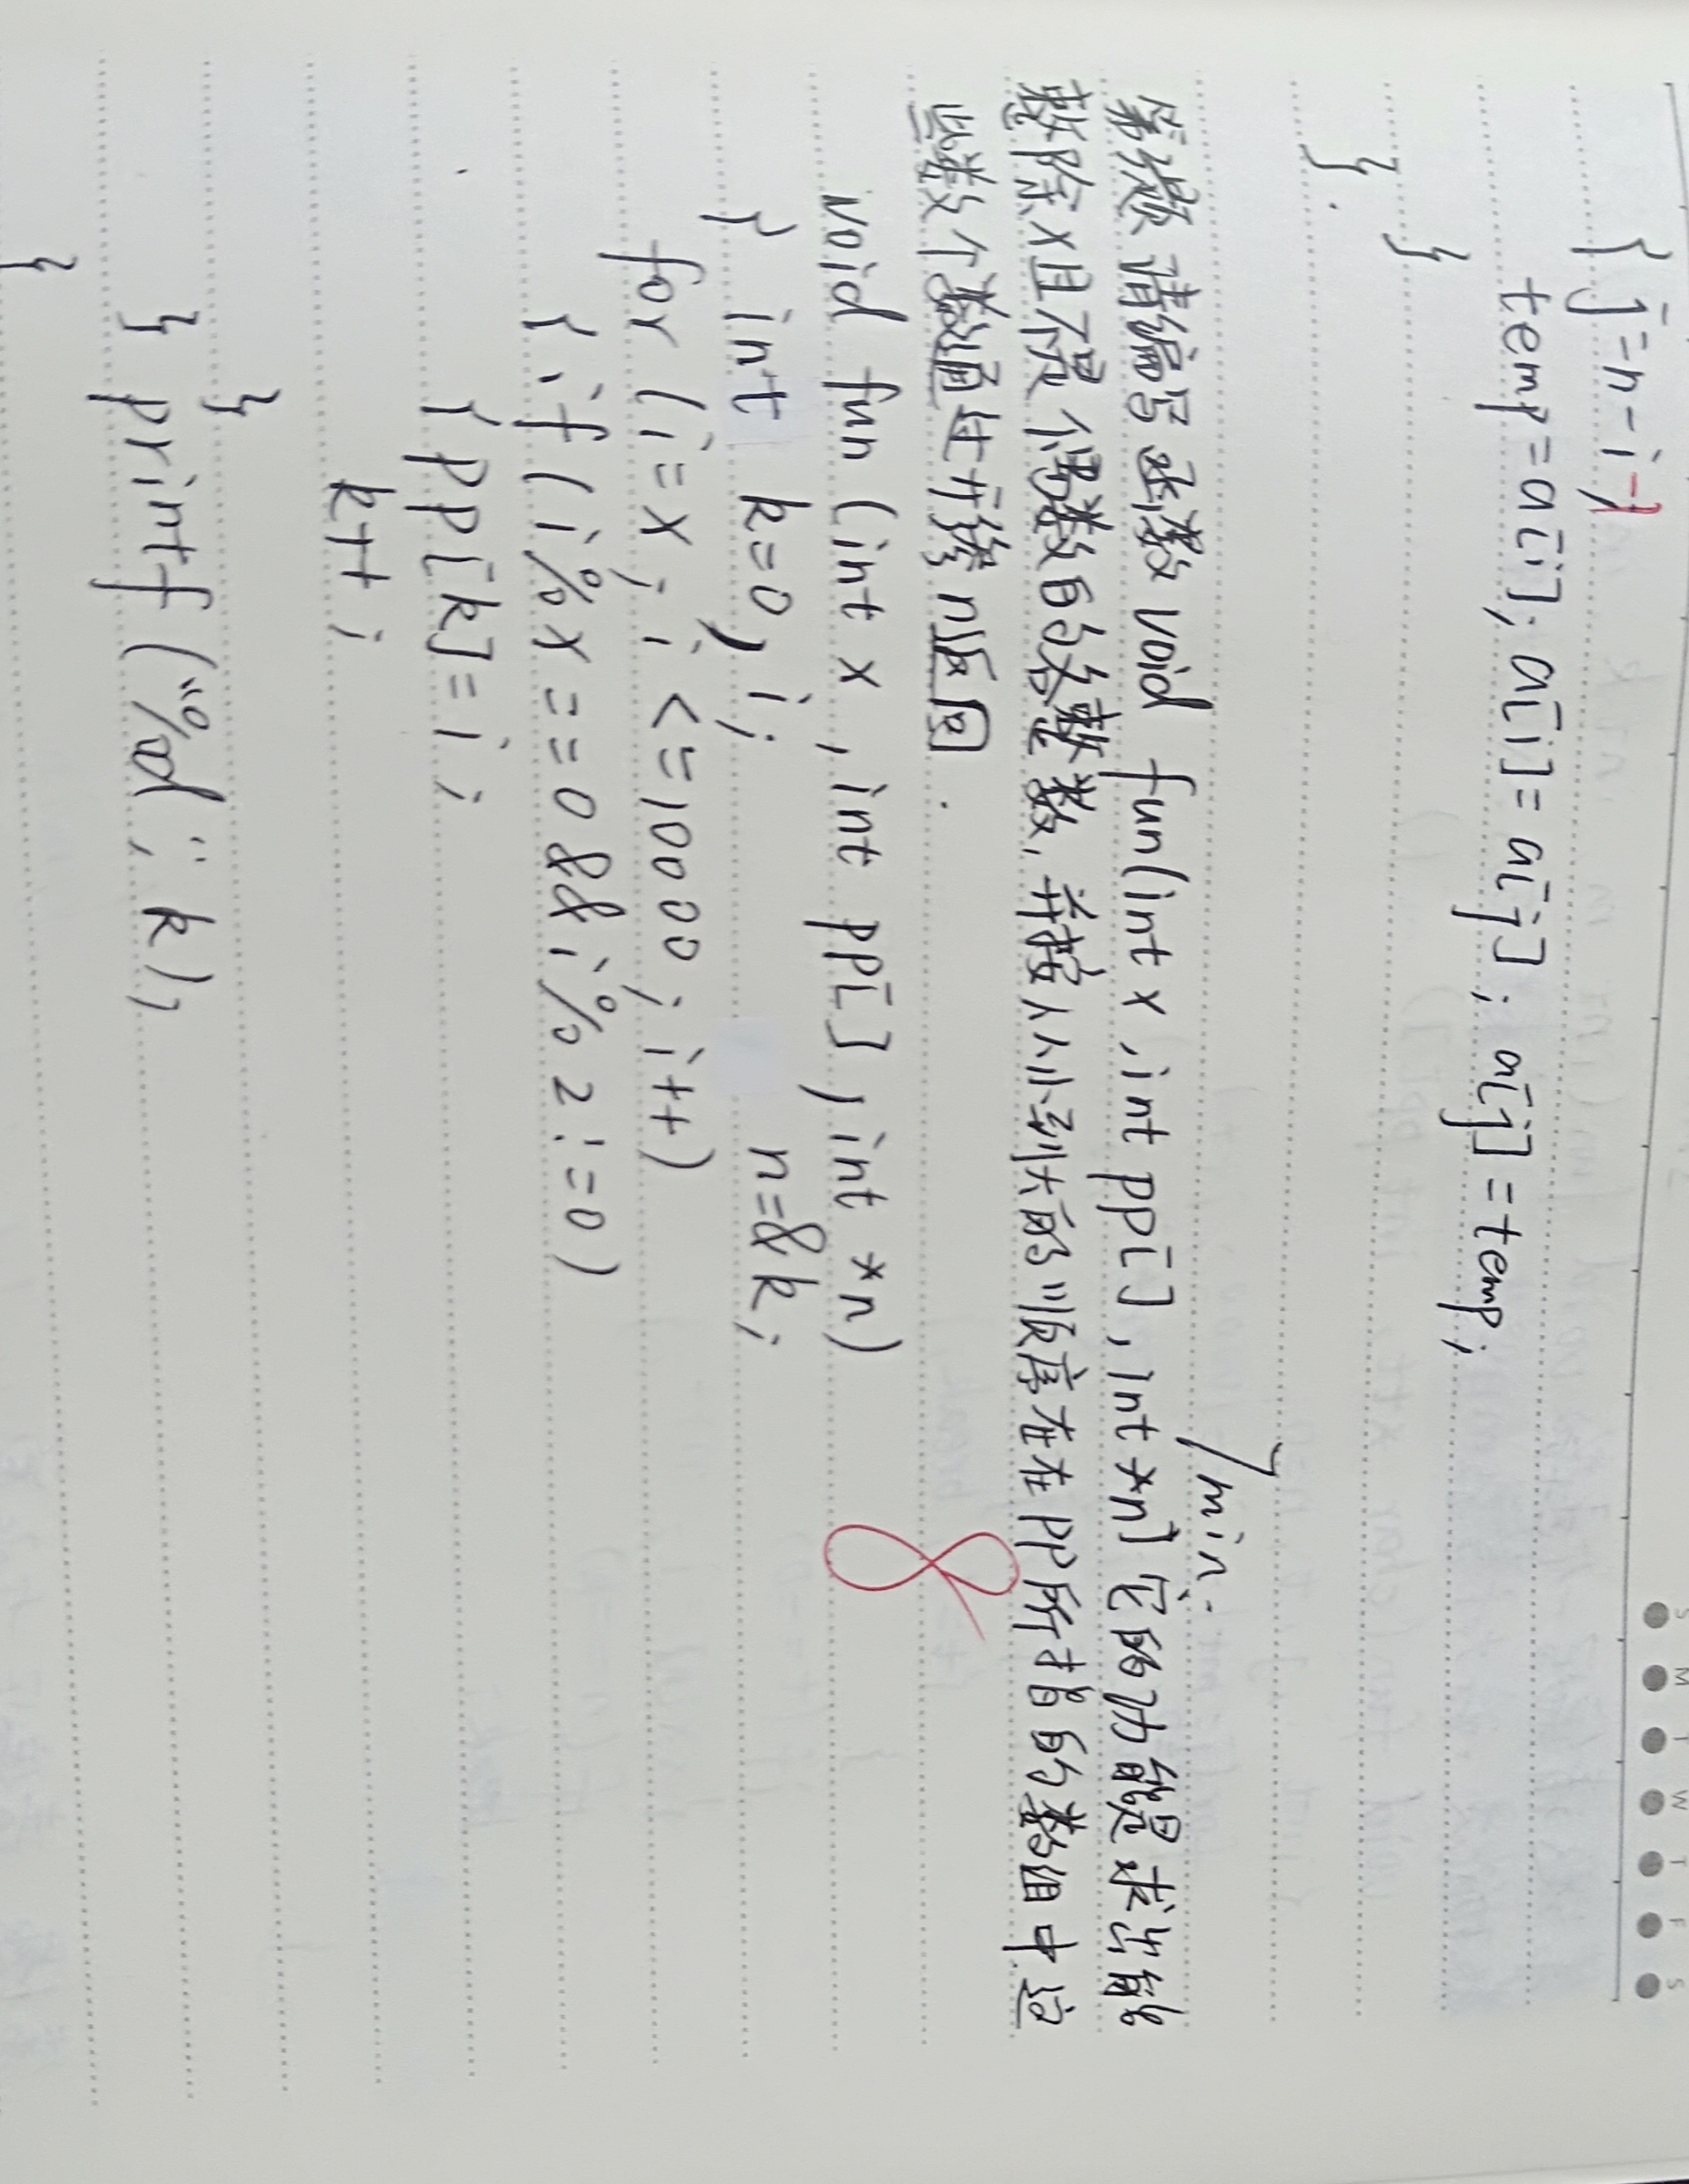 { j=n-i-1
temp=a[i]; a[i]=a[j]; a[j]=temp;
}
}.
7min.
第 题 请编写函数 void fun(int x, int pp[], int *n) 它的功能是求出能
整除x且不是偶数的各整数, 并按从小到大的顺序在在pp所指的数组中这
些数个数通过形 n返回.
void fun (int x, int pp[], int *n)
{ int k=0, i; n=&k;
for (i=x; i<=10000; i++)
{ if (i%x==0&&i%2!=0)
{ pp[k]=i;
k++;
}
} printf("%d", k);
}
S M T W T F S